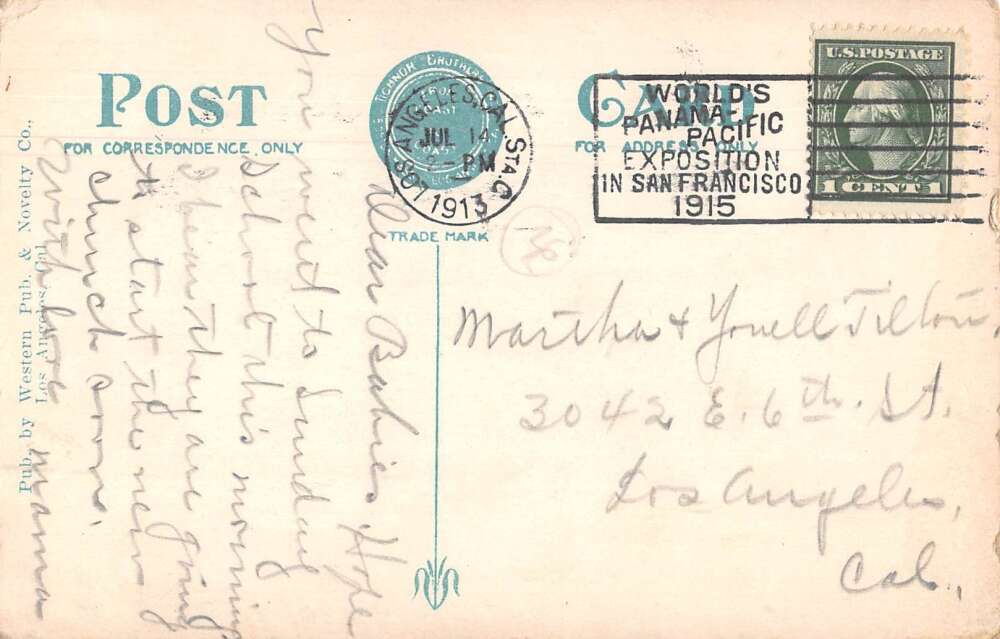 POST CARD
FOR CORRESPONDENCE ONLY
FOR ADDRESS ONLY
TICHNOR BROTHERS
TRADE MARK
LOS ANGELES, CAL. STA. C
JUL 14
PM
1913
WORLD'S
PANAMA
PACIFIC
EXPOSITION
IN SAN FRANCISCO
1915
U.S. POSTAGE
1 CENT 1
Dear Babies Hope
you went to Sunday
School this morning
I hear they are going
to start the new
church soon.
With love Mama
Martha & Yowell Tilton,
3042 E. 6th. St.
Los Angeles,
Cal.,
Pub. by Western Pub. & Novelty Co.,
Los Angeles, Cal.